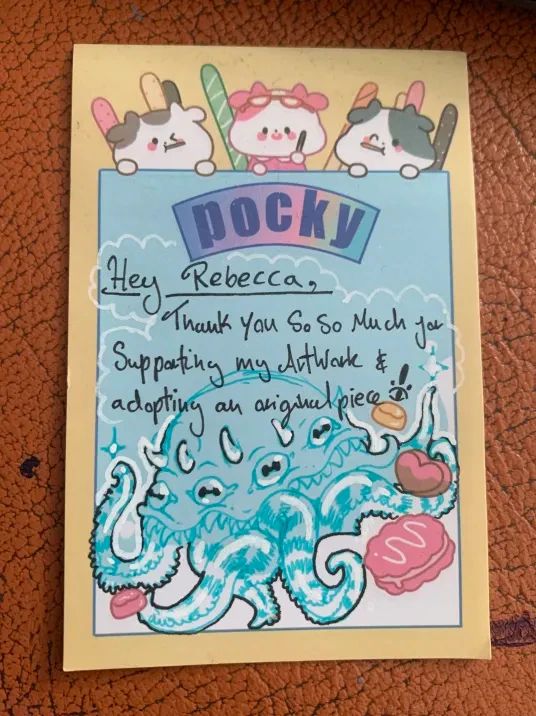 pocky
Hey Rebecca,
Thank you so so Much for
Supporting my Artwork &
adopting an original piece !